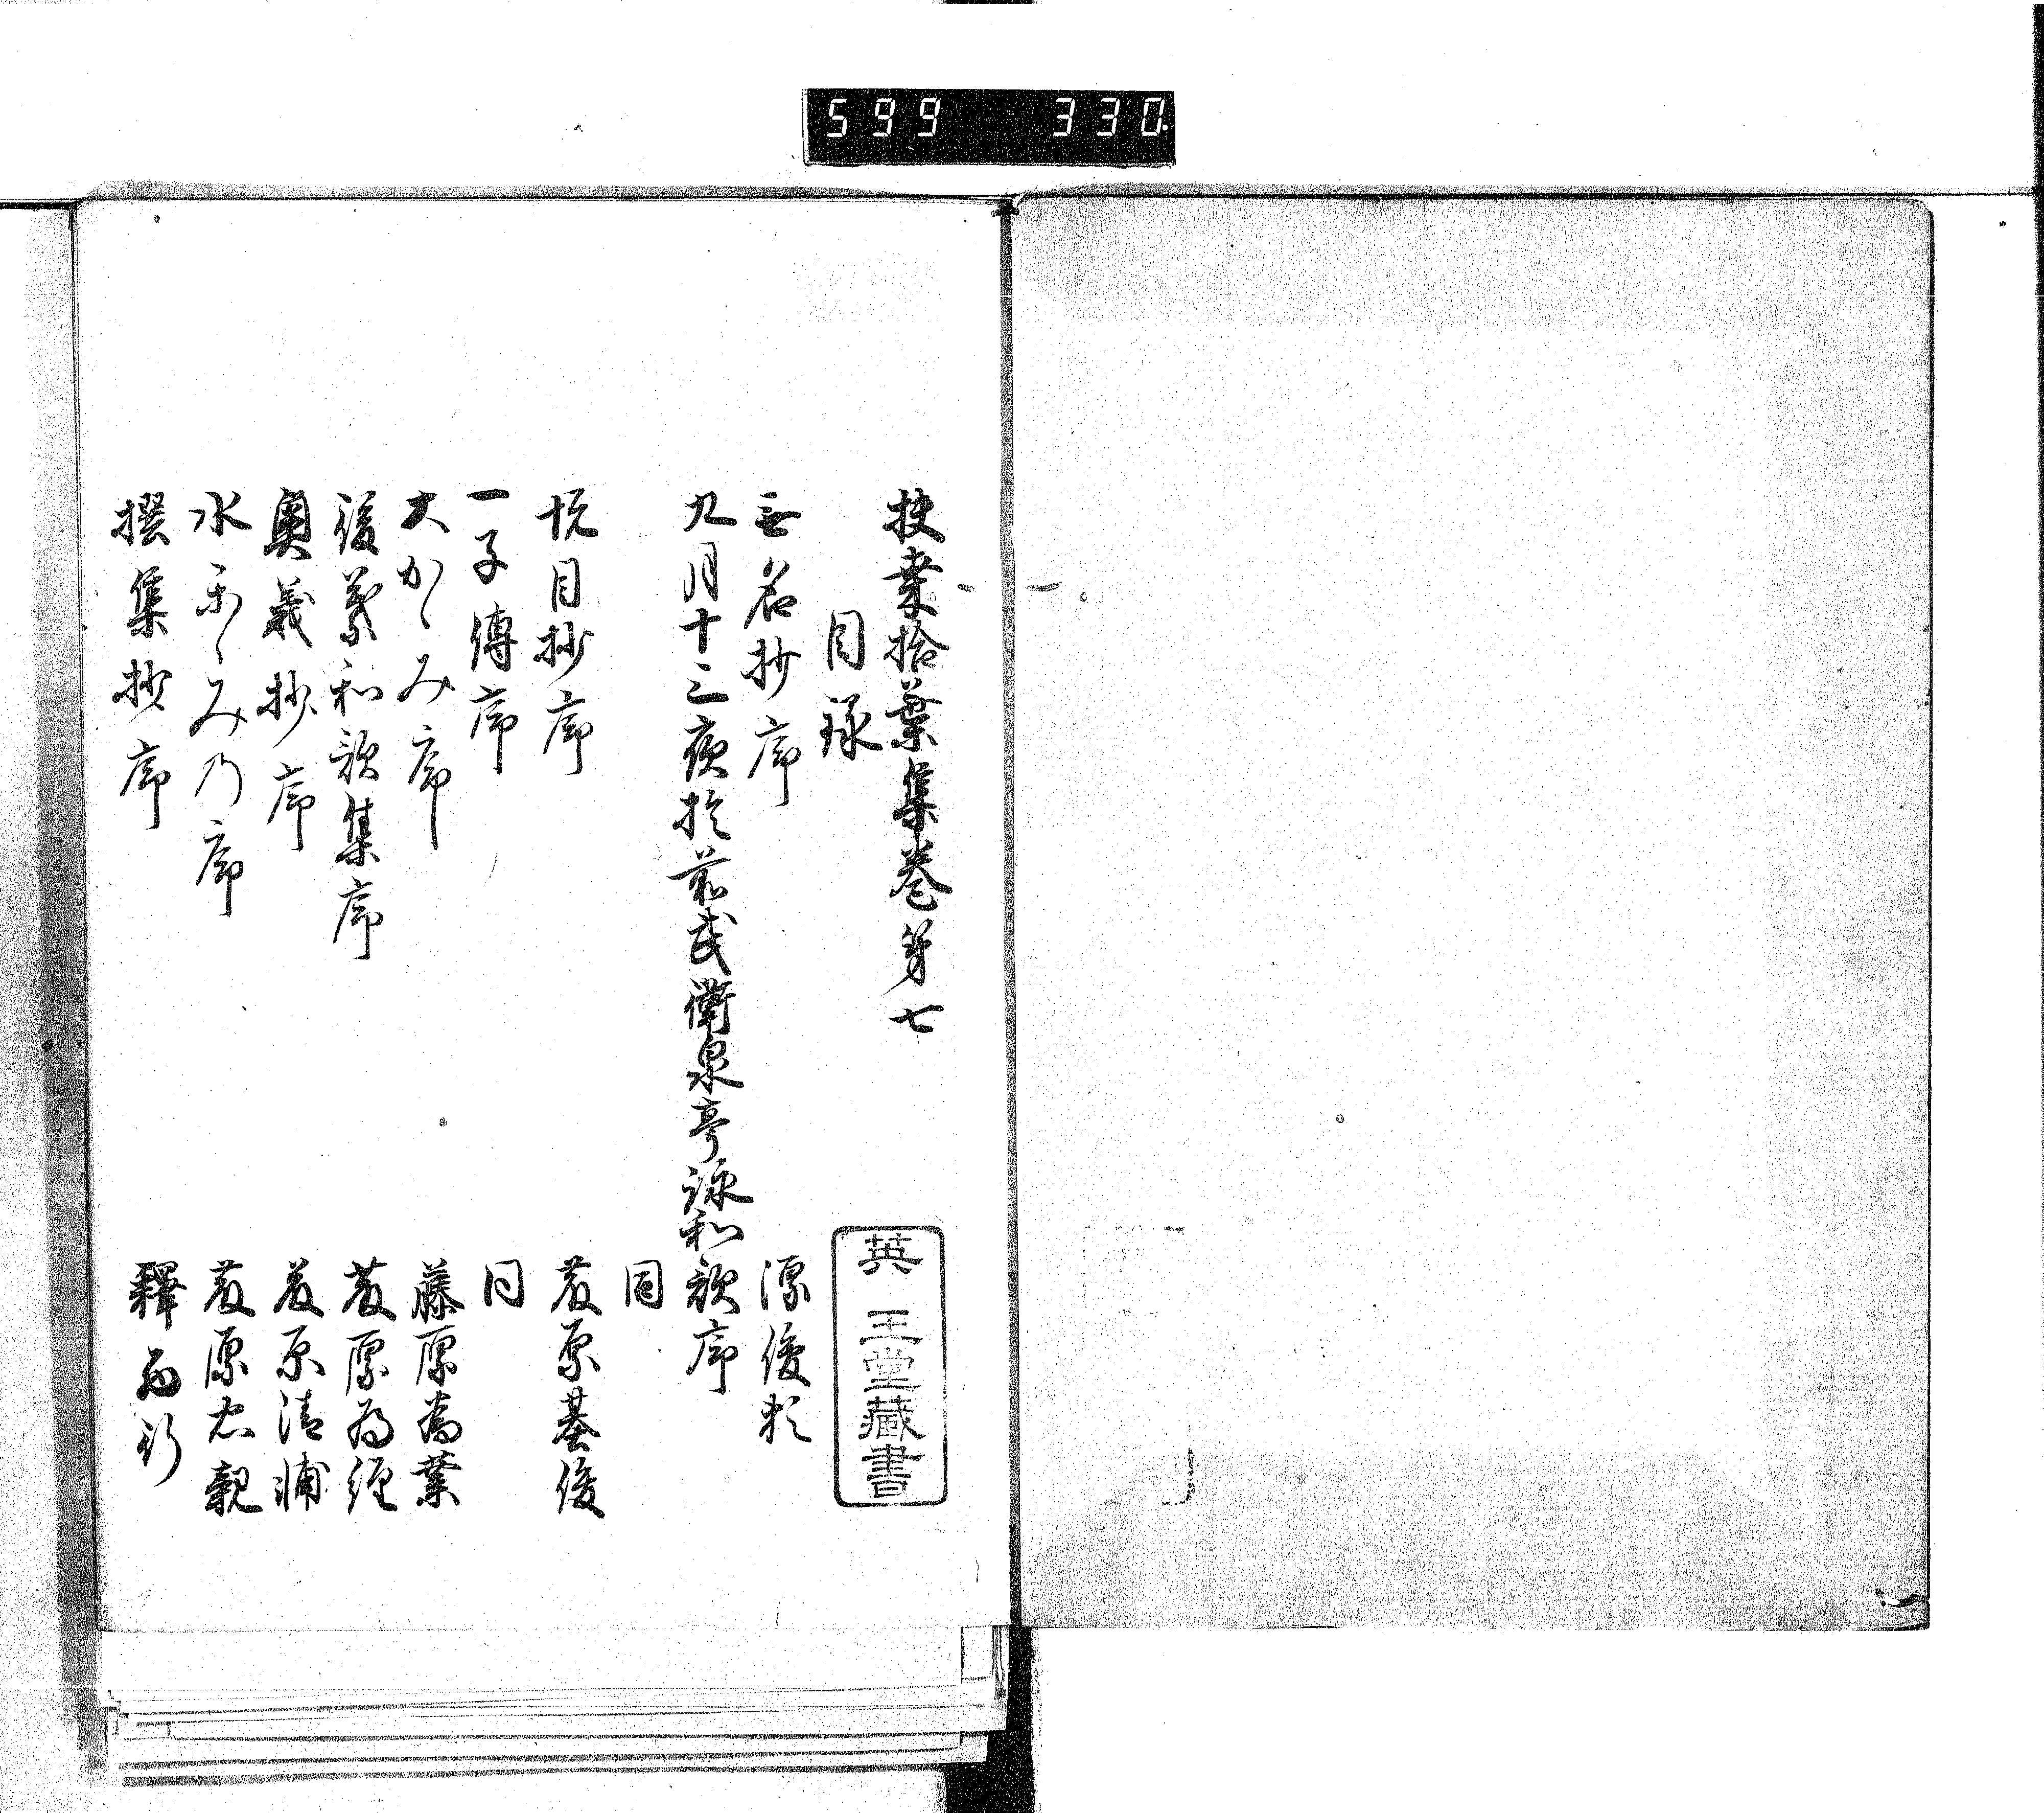 599 330.
扶桒拾葉集巻第七
目録
無名抄序 源俊頼
九月十三夜於前武衛泉亭詠和歌序
同
悦目抄序 藤原基俊
一子傳序 同
大かゝみ序 藤原為業
後葉和歌集序 藤原為經
奥義抄序 藤原清輔
水かゝみ乃序 藤原忠親
撰集抄序 釋西行
英王堂藏書